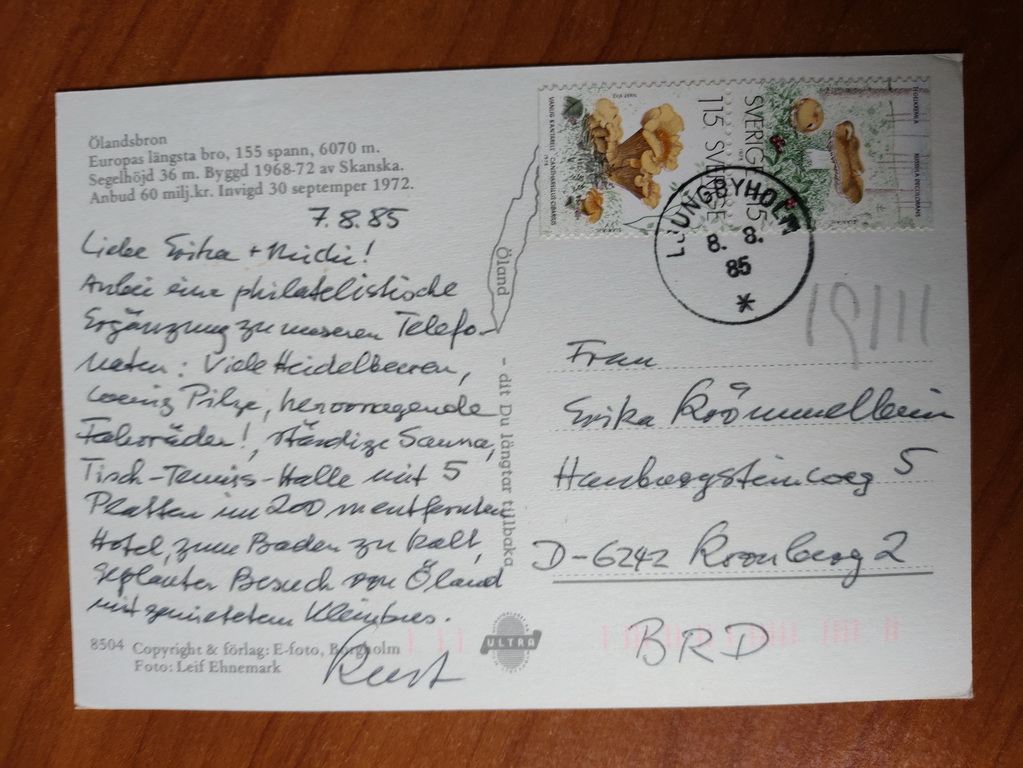 Ölandsbron
Europas längsta bro, 155 spann, 6070 m.
Segelhöjd 36 m. Byggd 1968-72 av Skanska.
Anbud 60 milj.kr. Invigd 30 septemper 1972.
7.8.85
Liebe Erika + Michi!
Anbei eine philatelistische
Ergänzung zu unseren Telefo-
naten: Viele Heidelbeeren,
wenig Pilze, hervorragende
Fahrräder!, ständige Sauna,
Tisch-Tennis-Halle mit 5
Platten im 200 m entfernten
Hotel, zum Baden zu kalt,
geplanter Besuch von Öland
mit gemietetem Kleinbus.
8504 Copyright & förlag: E-foto, Borgholm
Foto: Leif Ehnemark
Öland
- dit Du längtar tillbaka
ULTRA
VANLIG KANTARELL CANTHARELLUS CIBARIUS
115 SVERIGE
SVERIGE 115
LJUNGBYHOLM
8. 8.
85
*
Frau
Erika
5
D-6242 Kronberg 2
BRD